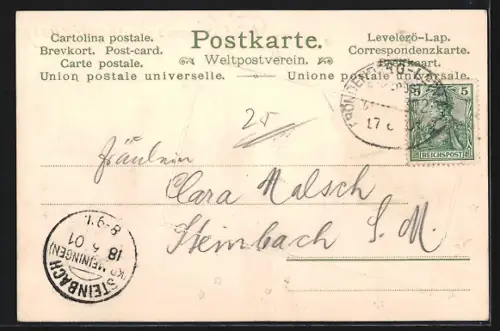 Cartolina postale. Postkarte. Levelezö-Lap.
Brevkort. Post-card. Correspondenzkarte.
Carte postale. Weltpostverein. Briefkaart.
Union postale universelle. Unione postale universale.
5 5
REICHSPOST
17 6
25
Fräulein
Clara Malsch
Steinbach S. M.
STEINBACH
(KR. MEININGEN)
18 6 01
8-9 V.